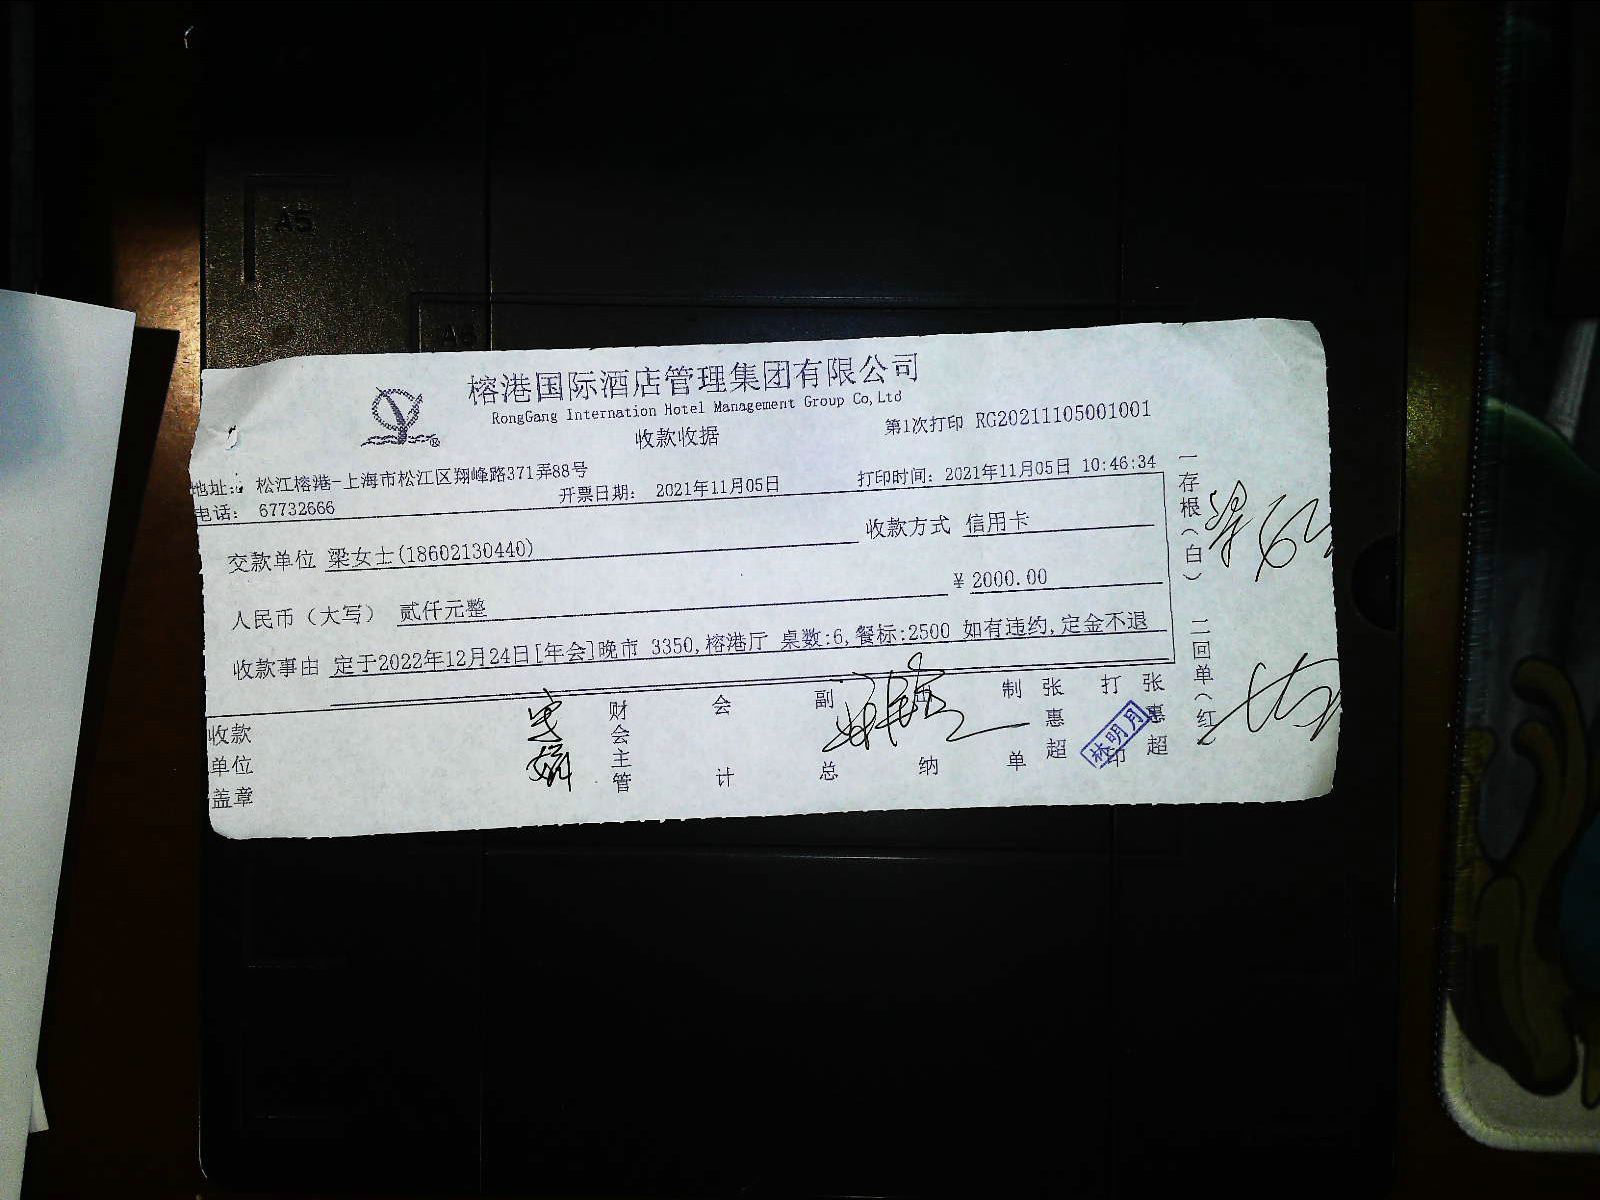 A5
A6
榕港国际酒店管理集团有限公司
RongGang Internation Hotel Management Group Co,Ltd
收款收据
第1次打印 RG20211105001001
地址: 松江榕港-上海市松江区翔峰路371弄88号
电话: 67732666
开票日期: 2021年11月05日
打印时间: 2021年11月05日 10:46:34
交款单位 梁女士(18602130440)
收款方式 信用卡
人民币（大写） 贰仟元整
¥ 2000.00
收款事由 定于2022年12月24日[年会]晚市 3350,榕港厅 桌数:6,餐标:2500 如有违约,定金不退
收款单位盖章
财会主管
会计
副总
纳
制单
张惠超
打印
张惠超
林明月
一存根（白）
二回单（红